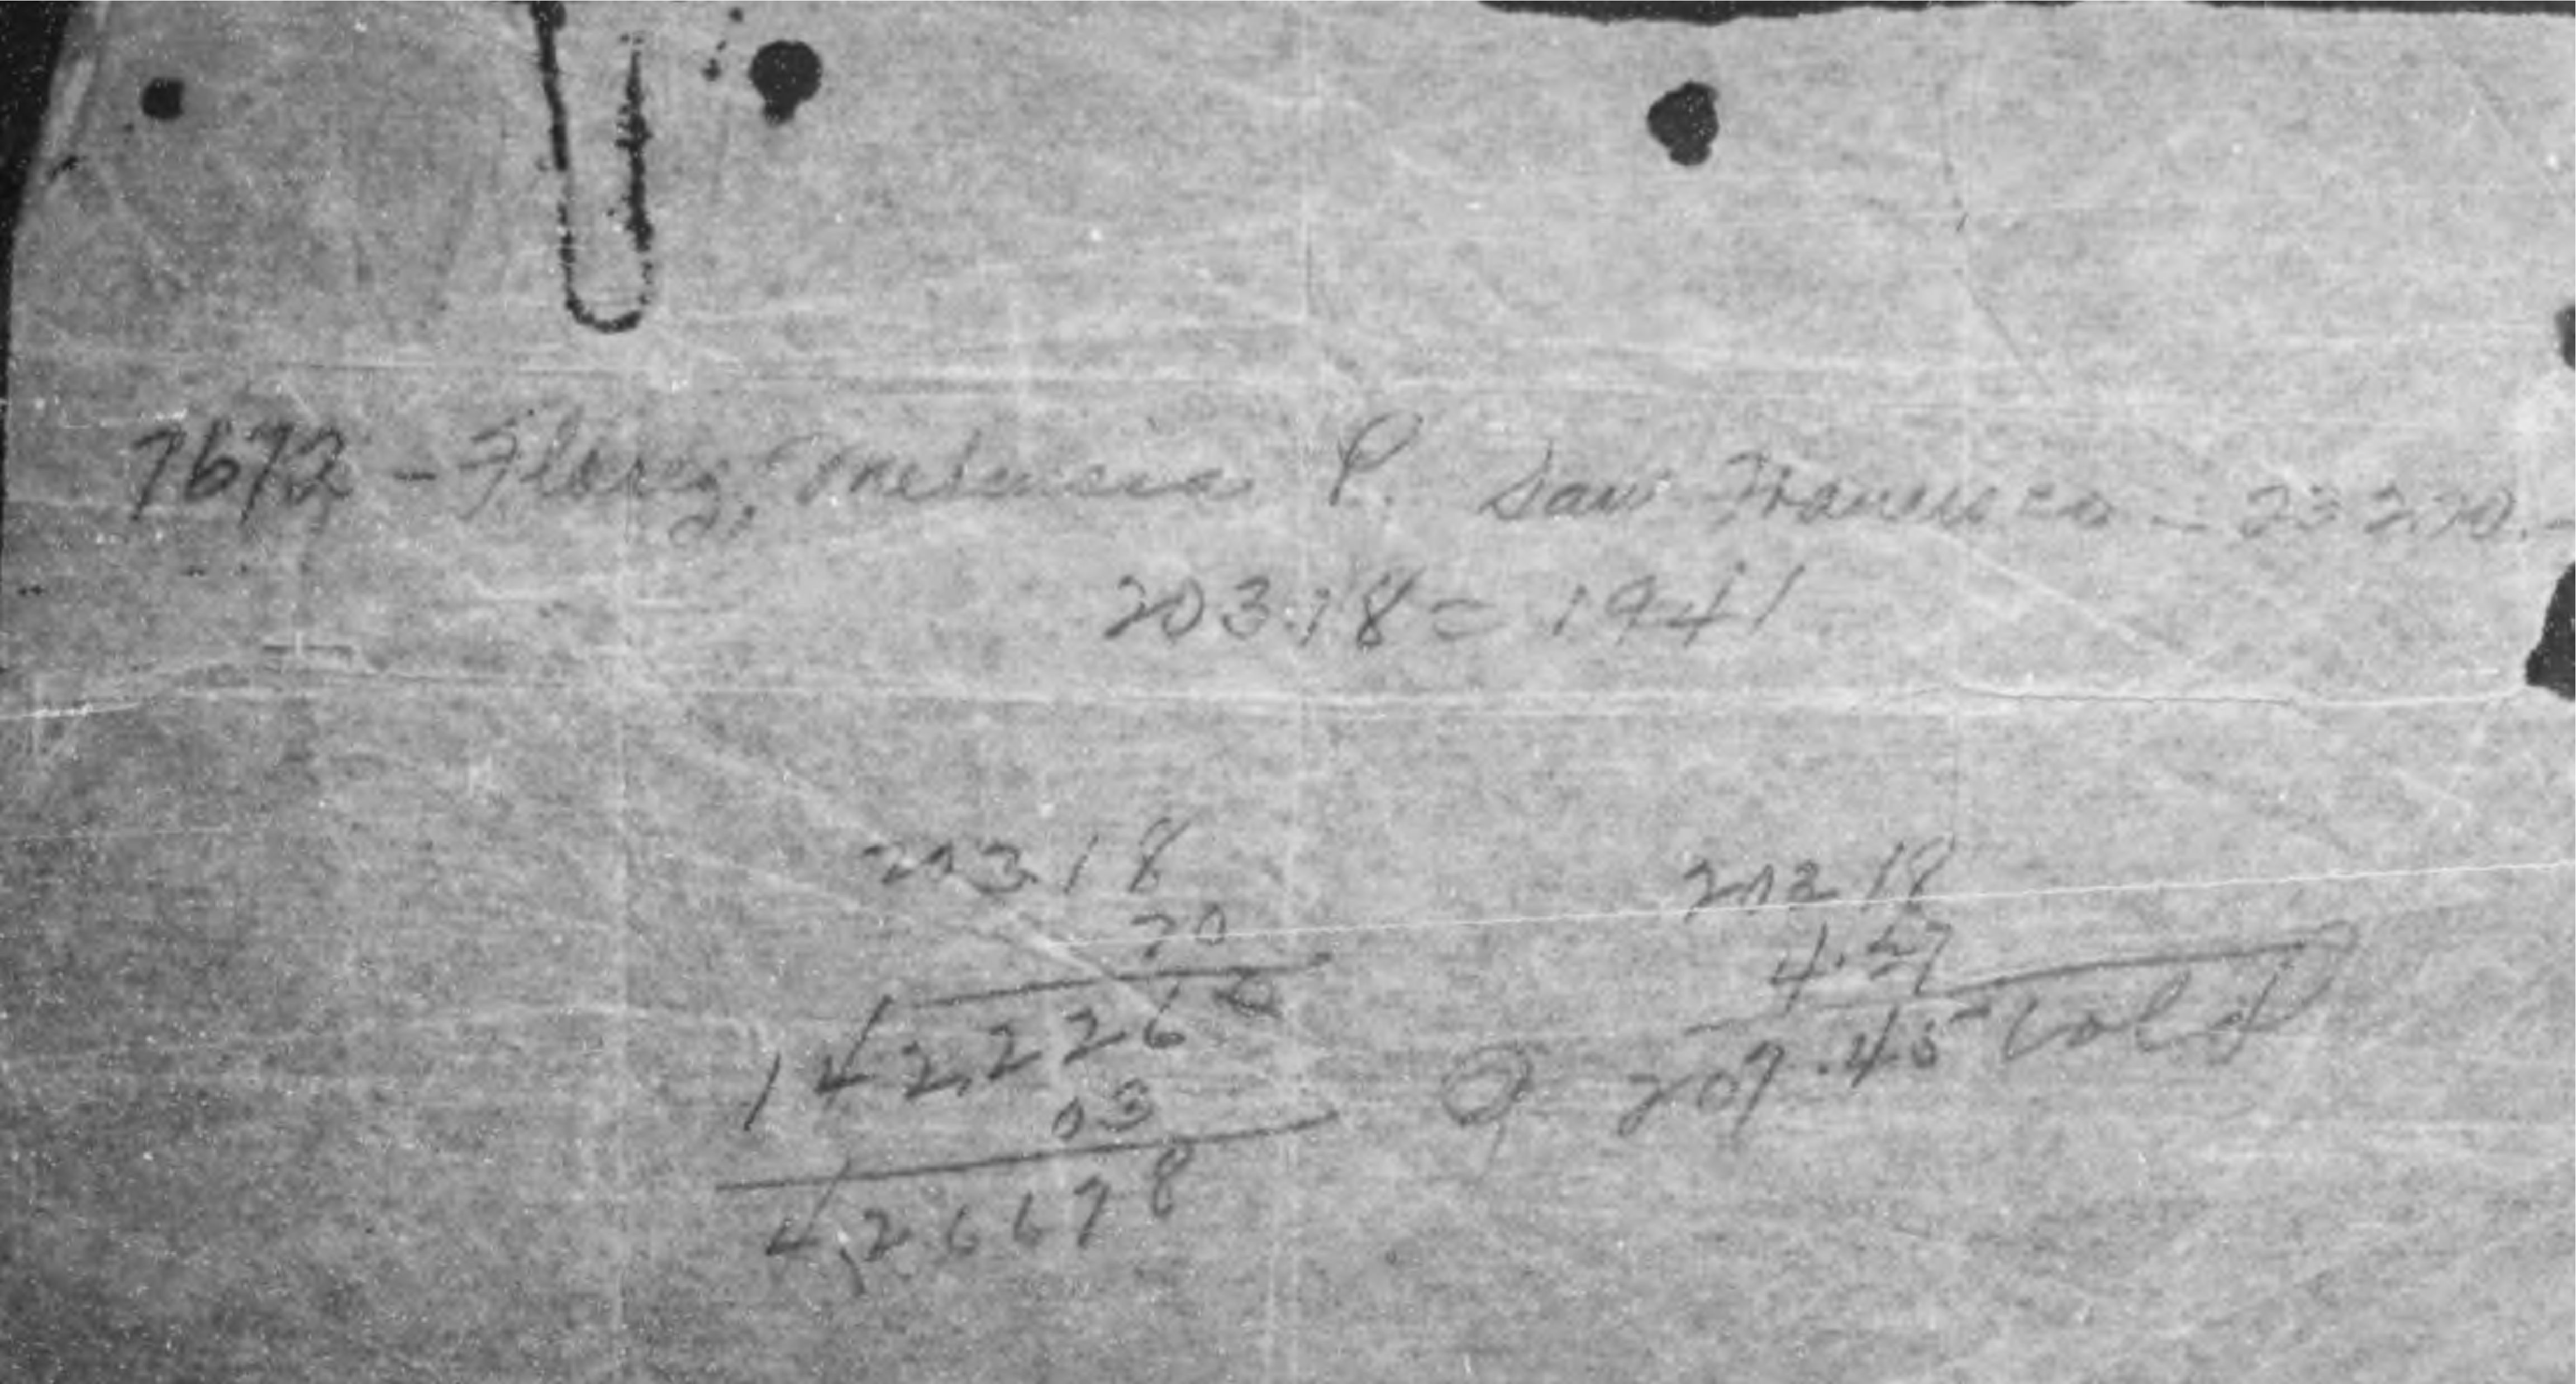 7672 - Florez, P. San Francisco - 232.70. -
203.18 = 1941
203.18
70
142,2260
03
4,26678
203 18
4.27
207.45 Cold